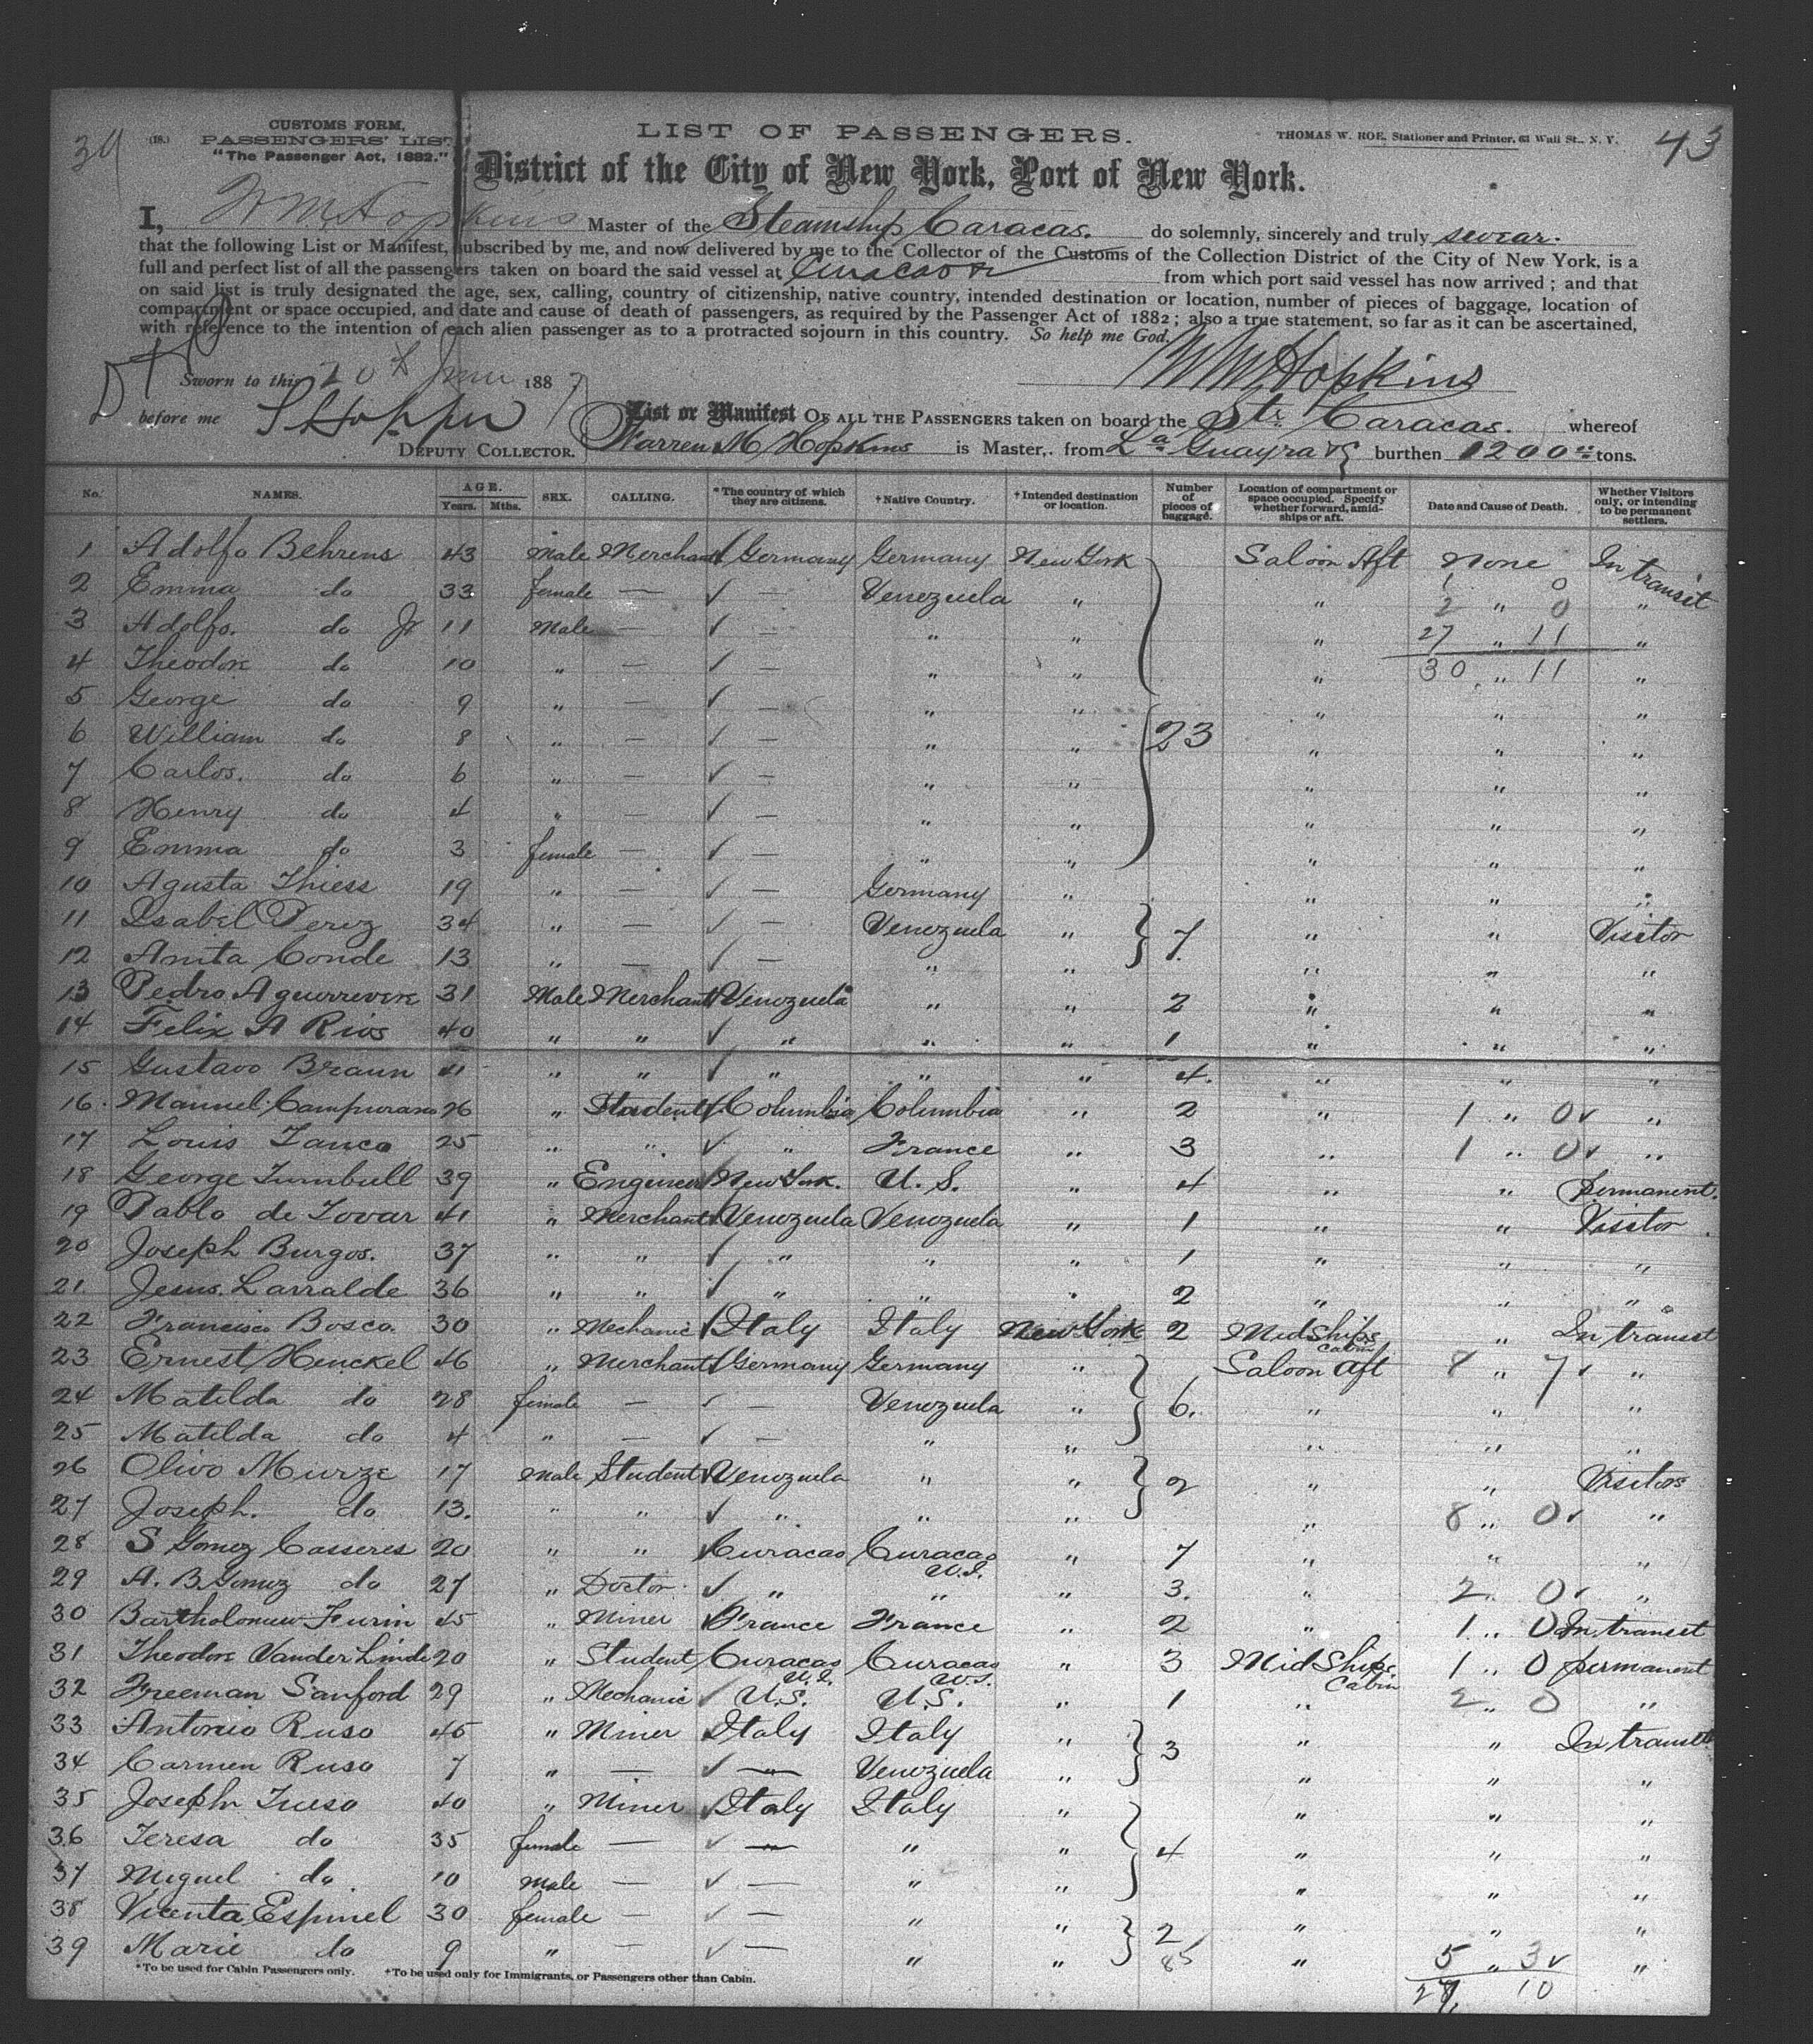 34
43
(18.)
CUSTOMS FORM,
PASSENGERS' LIST
"The Passenger Act, 1882."
LIST OF PASSENGERS.
THOMAS W. ROE, Stationer and Printer, 61 Wall St., N. Y.
District of the City of New York, Port of New York.
I, W M Hopkins Master of the Steamship Caracas. do solemnly, sincerely and truly swear.
that the following List or Manifest, subscribed by me, and now delivered by me to the Collector of the Customs of the Collection District of the City of New York, is a
full and perfect list of all the passengers taken on board the said vessel at Curacao from which port said vessel has now arrived; and that
on said list is truly designated the age, sex, calling, country of citizenship, native country, intended destination or location, number of pieces of baggage, location of
compartment or space occupied, and date and cause of death of passengers, as required by the Passenger Act of 1882; also a true statement, so far as it can be ascertained,
with reference to the intention of each alien passenger as to a protracted sojourn in this country. So help me God.
W M Hopkins
Sworn to this 20th June 1887
before me
DEPUTY COLLECTOR.
List or Manifest OF ALL THE PASSENGERS taken on board the Str. Caracas. whereof
Warren M Hopkins is Master, from La Guayra &c burthen 1200 tons.
No. NAMES. AGE. Years. Mths. SEX. CALLING. *The country of which they are citizens. †Native Country. †Intended destination or location. Number of pieces of baggage. Location of compartment or space occupied. Specify whether forward, amidships or aft. Date and Cause of Death. Whether Visitors only, or intending to be permanent settlers.
1 Adolfo Behrens 43 Male Merchant ✓ Germany Germany New York Saloon Aft None In transit
2 Emma do 33 female — ✓ — Venezuela " " 1 0 "
3 Adolfo. do Jr 11 Male — ✓ — " " " 2 " 0 "
4 Theodore do 10 " — ✓ — " " " 27 " 11 "
5 George do 9 " — ✓ — " " " 30 " 11 "
6 William do 8 " — ✓ — " " 23 " " "
7 Carlos. do 6 " — ✓ — " " " " "
8 Henry do 4 " — ✓ — " " " " "
9 Emma do 3 female — ✓ — " " " " "
10 Agusta Thiess 19 " — ✓ — Germany " " " "
11 Isabel Perez 34 " — ✓ — Venezuela " 7. " " Visitor
12 Anita Conde 13 " — ✓ — " " " " "
13 Pedro Aguerrevere 31 Male Merchant ✓ Venezuela " " 2 " " "
14 Felix A Rios 40 " " ✓ " " " 1 " " "
15 Gustavo Braun 41 " " ✓ " " " 4. " " "
16. Manuel Campurano 26 " Student ✓ Columbia Columbia " 2 " 1 " 0✓ "
17 Louis Tanco 25 " " ✓ " France " 3 " 1 " 0✓ "
18 George Turnbull 39 " Engineer ✓ New York. U. S. " 4 " " Permanent.
19 Pablo de Tovar 41 " Merchant ✓ Venezuela Venezuela " 1 " " Visitor
20 Joseph Burgos. 37 " " ✓ " " " 1 " " "
21. Jesus. Larralde 36 " " ✓ " " " 2 " " "
22 Francisco Bosco. 30 " Mechanic ✓ Italy Italy New York 2 MidShips Cabin " In transit
23 Ernest Henckel 46 " Merchant ✓ Germany Germany " Saloon aft 8 " 7✓ "
24 Matilda do 28 female — ✓ — Venezuela " 6. " " "
25 Matilda do 4 " — ✓ — " " " " "
26 Olivo Murze 17 Male Student ✓ Venezuela " " 2 " " Visitors
27 Joseph. do 13. " " ✓ " " " " 8 " 0✓ "
28 S Gomez Casseres 20 " " ✓ Curacao Curacao W.I. " 7 " " "
29 A. B Gomez do 27 " Doctor. ✓ " " " 3. " 2 " 0✓ "
30 Bartholomew Furin 45 " Miner ✓ France France " 2 " 1 " 0 In transit
31 Theodore Vander Linde 20 " Student ✓ Curacao W.I. Curacao W.I. " 3 MidShips Cabin 1 " 0 permanent
32 Freeman Sanford 29 " Mechanic ✓ U.S. U.S. " 1 " 2 " 0 "
33 Antonio Ruso 45 " Miner ✓ Italy Italy " 3 " " In transit
34 Carmen Ruso 7 " — ✓ " Venezuela " " " "
35 Joseph 40 " Miner ✓ Italy Italy " " " "
36 Teresa do 35 female — ✓ " " " 4 " " "
37 Miguel do. 10 male — ✓ — " " " " "
38 Vicenta Espinel 30 female — ✓ — " " 2 " " "
39 Marie do 9 " — ✓ — " " 85 " 5 " 3✓ "
*To be used for Cabin Passengers only. †To be used only for Immigrants, or Passengers other than Cabin.
27, 10